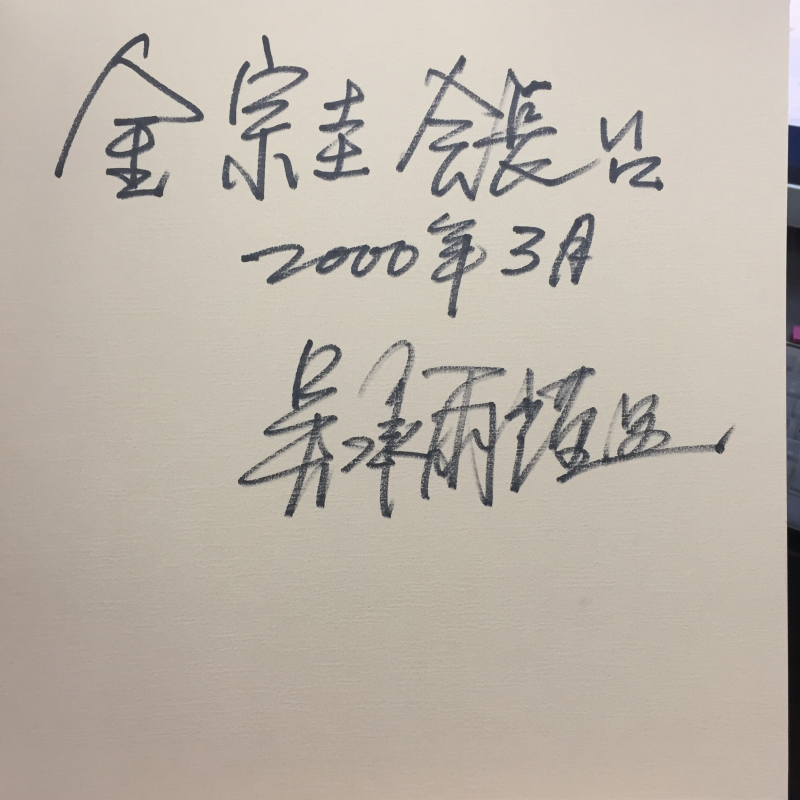 金宗圭 会長님
2000年 3月
吳承雨 謹呈